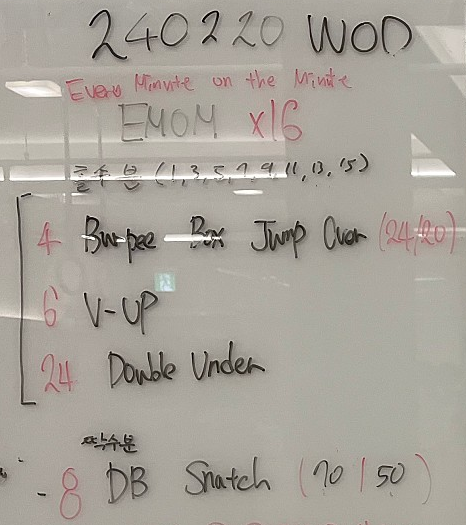 240220 WOD
Every Minute on the Minute
EMOM x16
홀수분 (1,3,5,7,9,11,13,15)
4 Burpee Box Jump Over (24/20)
6 V-UP
24 Double Under
짝수분
- 8 DB Snatch (70/50)